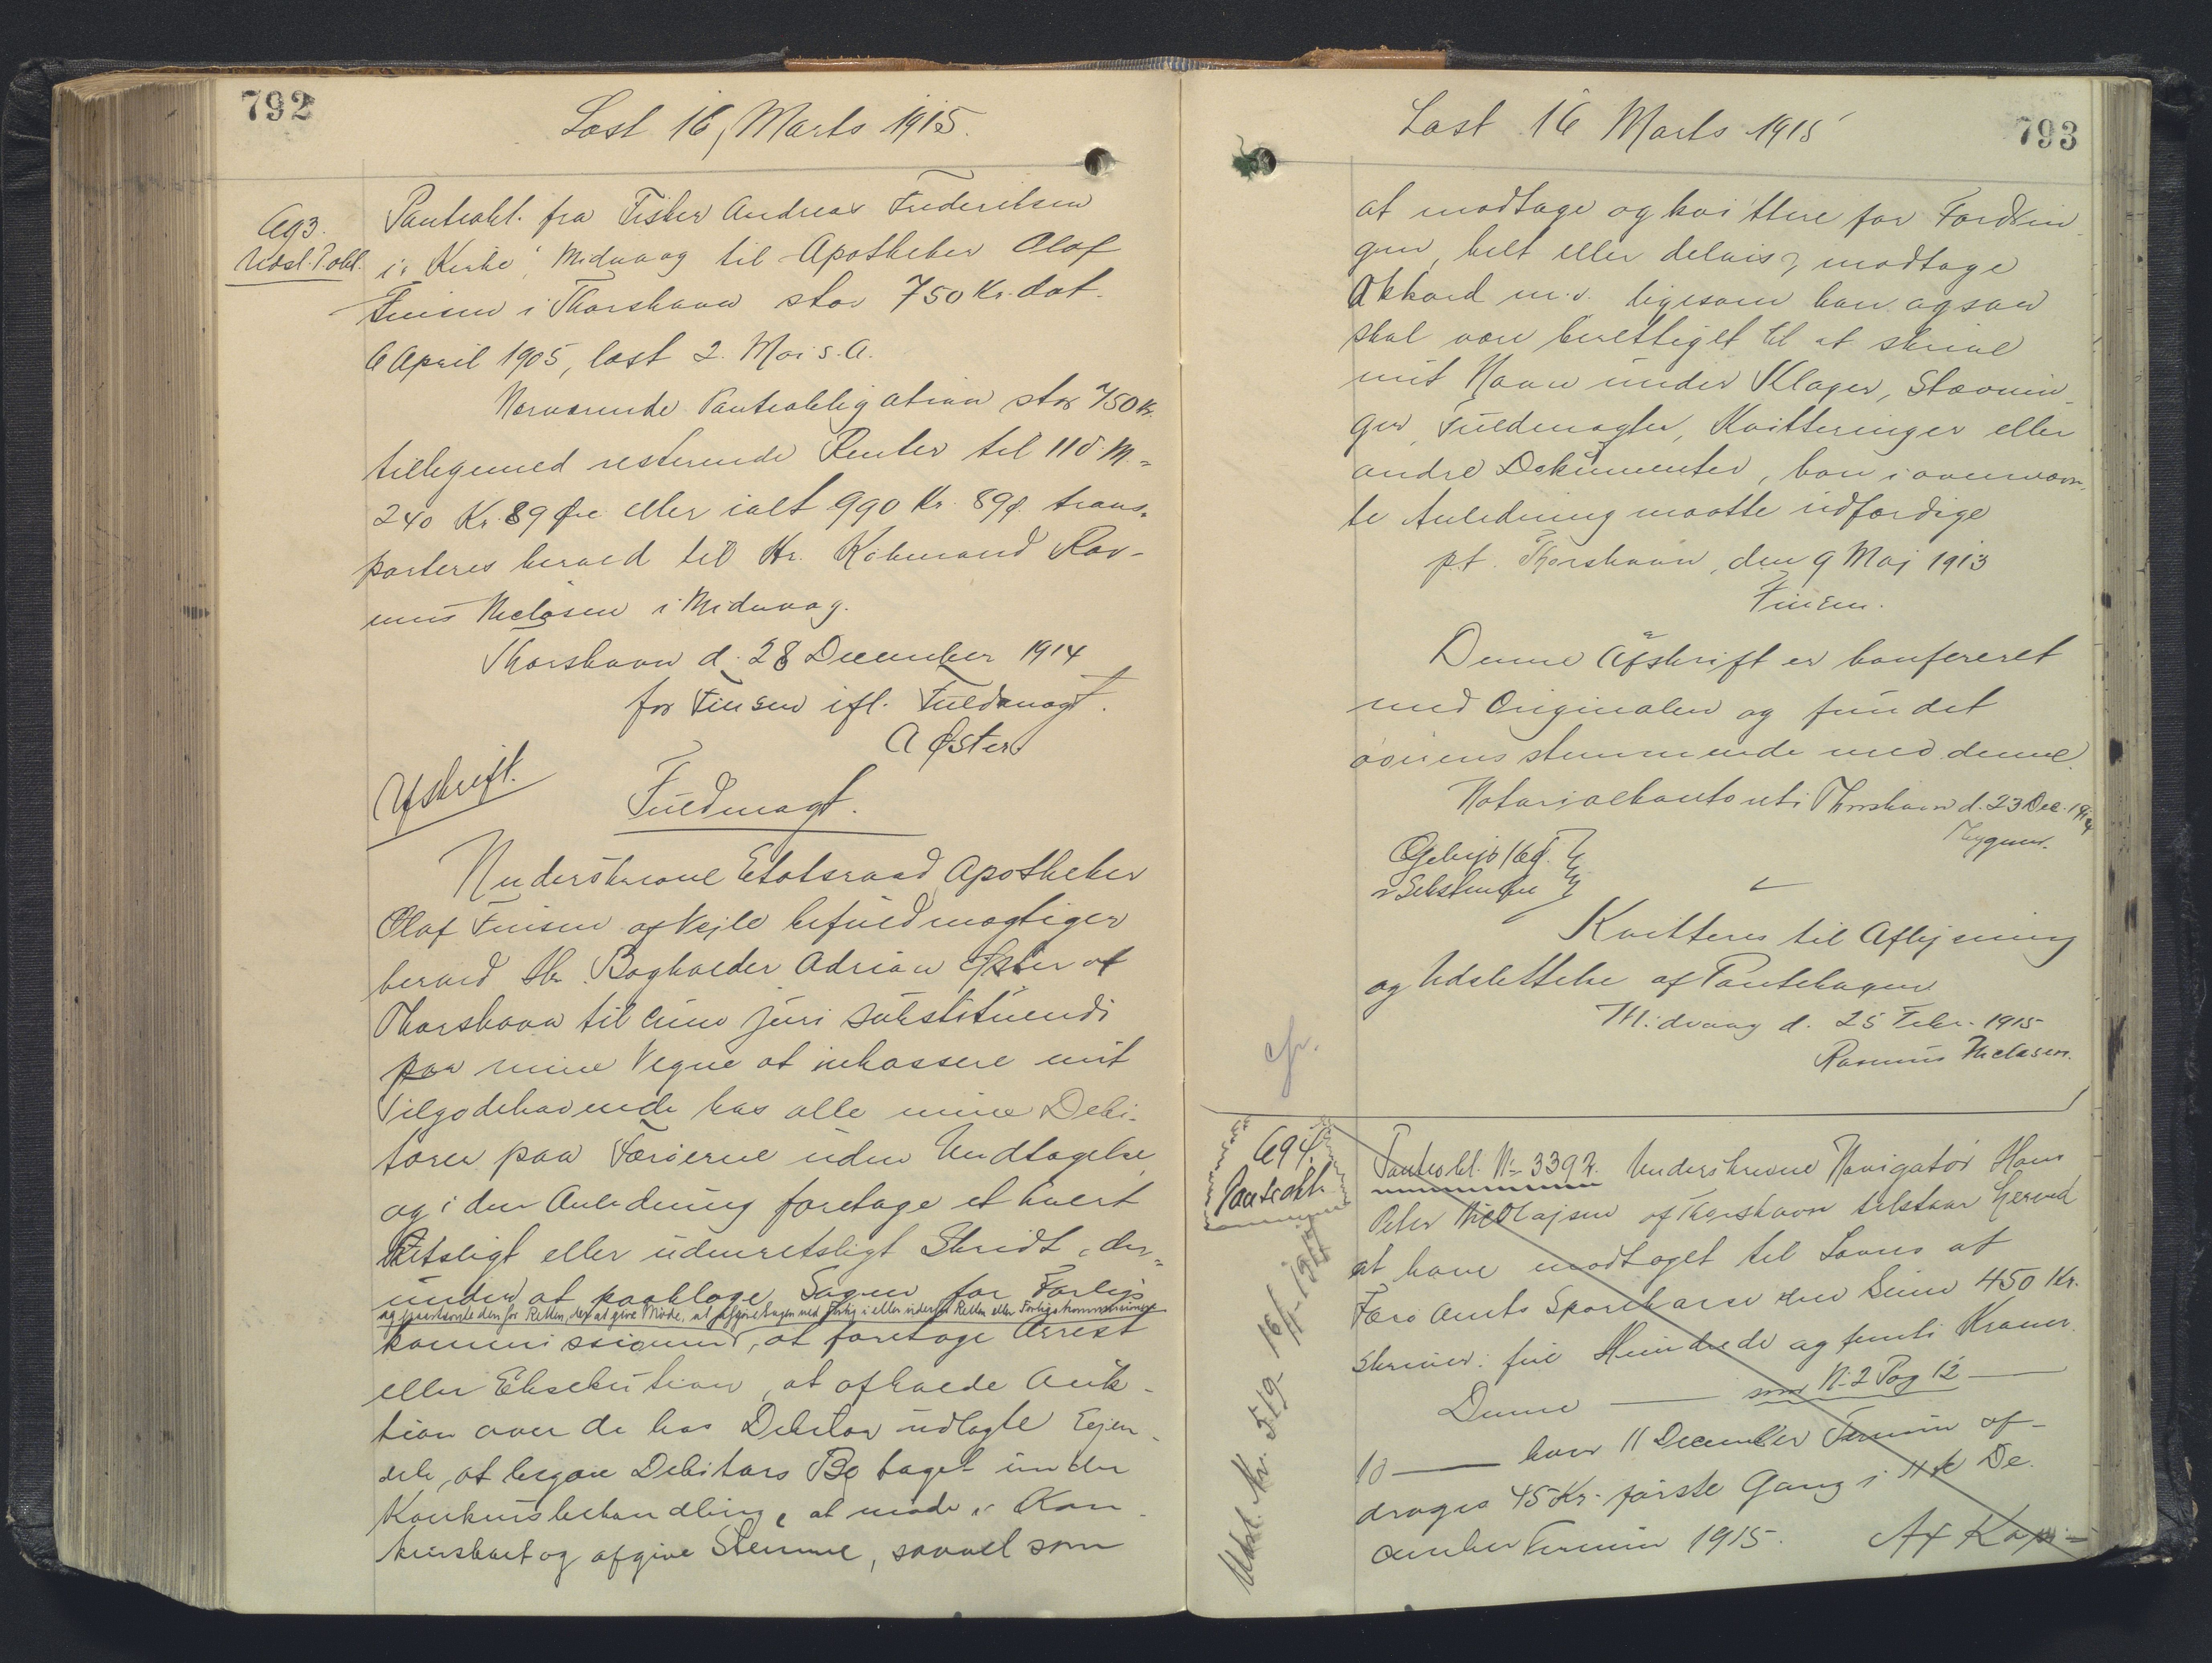 792
Læst 16, Marts 1915.
693.
Udsl. P. obl.
Panteobl. fra Fisker Andreas Frederiksen
i "Kirke", Midvaag til Apotheker Olaf
Finsen i Thorshavn stor 750 Kr. dat.
6 April 1905, læst 2. Mai s. A.
Nærværende Panteobligation stor 750 Kr.
tilligemed resterende Renter til 11 d. M. =
240 Kr. 89 Øre eller ialt 990 Kr. 89 Ø. trans=
porteres herved til Hr. Købmand Ras-
mus Niclasen i Midvaag.
Thorshavn d. 28 December 1914
for Finsen ifl. Fuldmagt.
A Øster
Afskrift.
Fuldmagt.
Underskrevne Etatsraad, Apotheker
Olaf Finsen af Vejle befuldmægtiger
herved Hr. Bogholder Adrian Øster af
Thorshavn til cum juri substituendi
paa mine Vegne at inkassere mit
Tilgodehavende hos alle mine Debi-
torer paa Færøerne uden Undtagelse
og i den Anledning foretage et hvert
Retsligt eller udenretsligt Skridt, der=
under at paaklage Sagen for Forligs
og fremtsætte den for Retten, der at give Møde, at afgøre Sagen ved Forlig i eller udenfor Retten eller Forligskommissionen
kommissionen, at foretage Arrest
eller Eksekution, at afholde Auk-
tion over de hos Debitor udlagte Ejen-
dele, at begære Debitors Bo taget under
Konkursbehandling, at møde i Kon-
kursboet og afgive Stemme, saavel som
793
Læst 16 Marts 1915
at modtage og kvittere for Fordrin-
gen, helt eller delvis, modtage
Akkord m. v. ligesom han ogsaa
skal være berettiget til at skrive
mit Navn under Klager, Stævnin-
ger, Fuldmagter, Kvitteringer eller
andre Dokumenter, han i ovennævn-
te Anledning maatte udfærdige
p. t. Thorshavn, den 9 Maj 1913
Finsen.
Denne Afskrift er konfereret
med Originalen og fundet
overensstemmende med denne.
Notarialkontoret i Thorshavn d. 23 Dec. 1914
Kvitteres til Aflysning
og Udslettelse af Pantebogen
Midvaag d. 25 Febr. 1915
Rasmus Niclasen.
cfr.
694.
Panteobl.
Panteobl. No 3392. Underskrevne Navigatør Hans
Peter Nicolajsen af Thorshavn tilstaar herved
at have modtaget til Laans af
Færø Amts Sparekasse en Sum 450 Kr.
skriver: fire Hundrede og femti Kroner.
Denne — som N. 2 Pag 12 —
10 — hver 11 December Termin af-
drages 45 Kr. første Gang i 11te De-
cember Termin 1915. Af Kapi=
Udsl. Nr. 519 - 16/11-1917